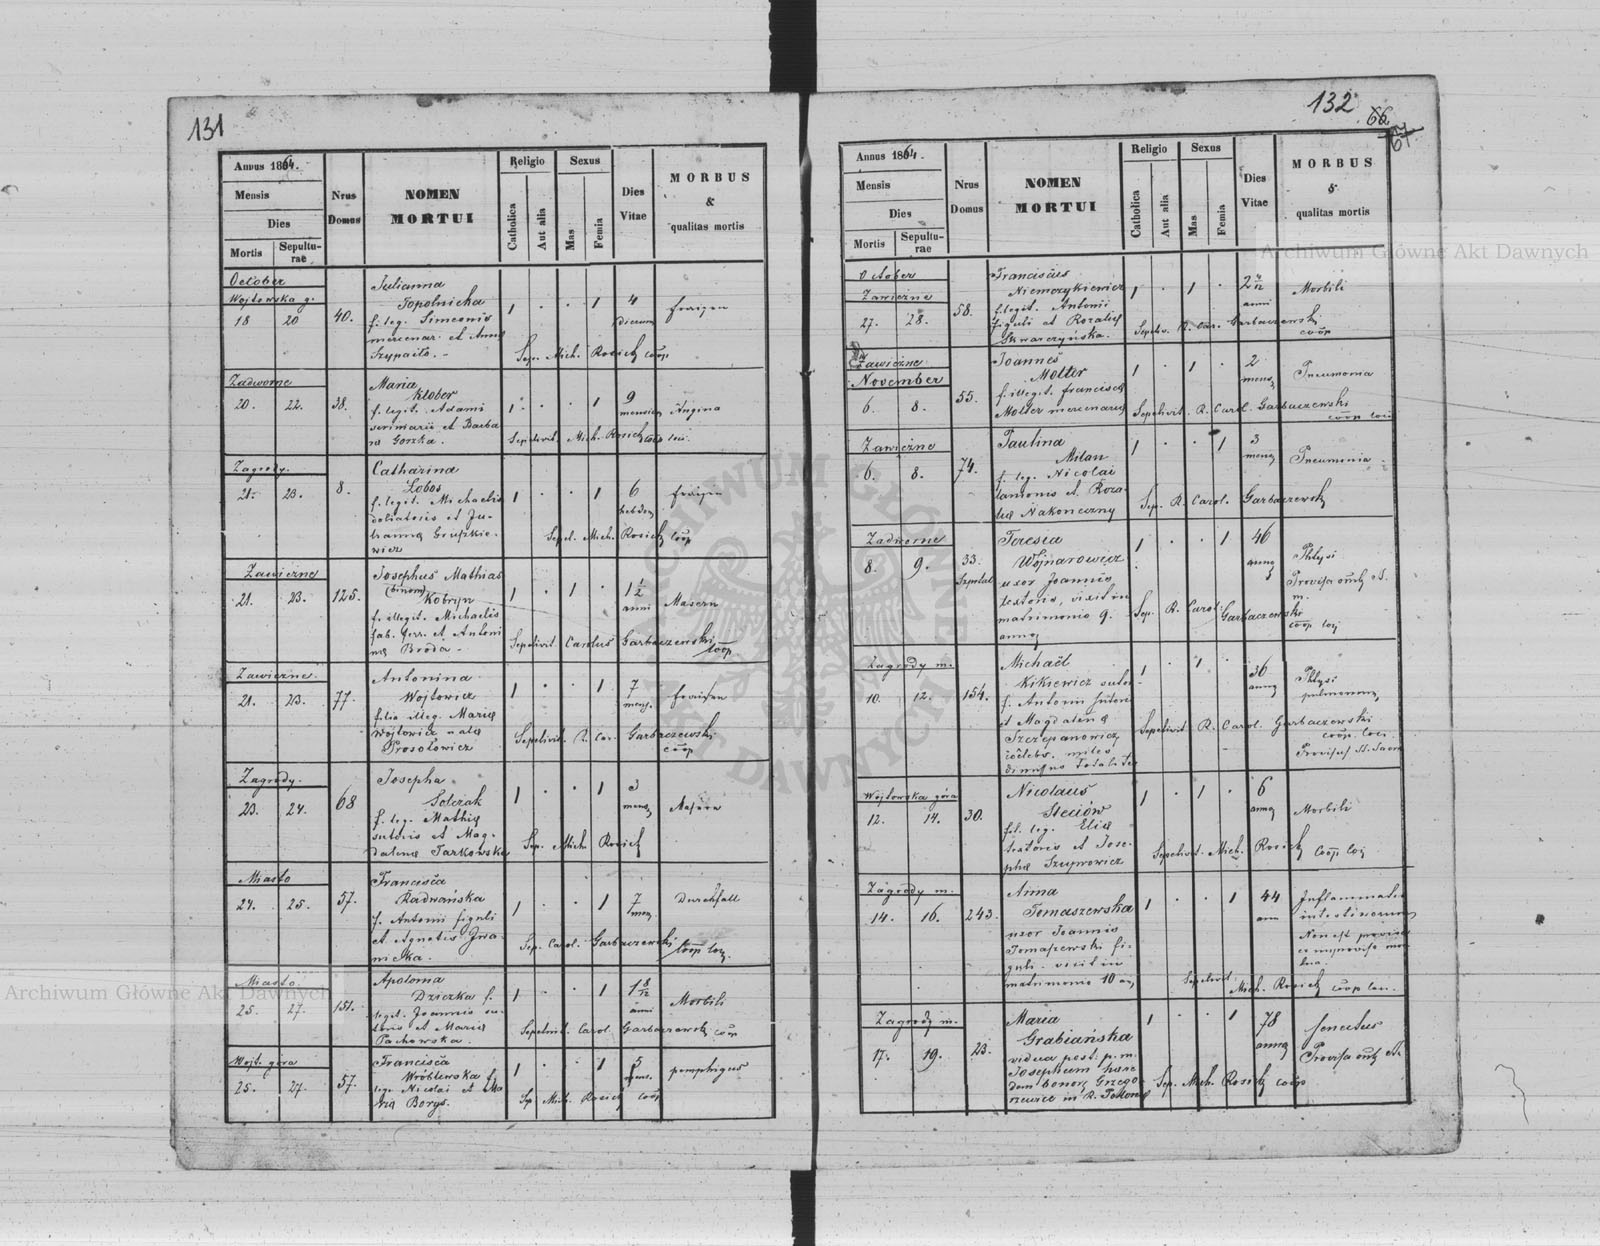 131
Annus 1864.
Mensis
Dies
Mortis
Sepulturae
Nrus Domus
NOMEN MORTUI
Religio
Catholica
Aut alia
Sexus
Mas
Femia
Dies Vitae
MORBUS & qualitas mortis
October
Wojtowska g.
18 20 40.
Julianna
Topolnicka
f. leg. Simeonis
mercenar. et Anna
Szypaiło. -
1 . . 1 4 dierum fraizen
Sep. Mich. Rosich coop
Zadworne
20. 22. 38.
Maria
Klober
f. legit. Adami
et Barba
ra Gorzka.
1 . . 1 9 mensium Angina
Sepelivit. Mich. Rosich coop loci.
Zagrody.
21. 23. 8.
Catharina
Łobos
f. legit. Michaelis
doliatoris et Ju-
lianna Gruszkie-
wicz
1 . . 1 6 hebdom fraizen
Sepel. Mich. Rosich coop
Zawiezne
21. 23. 125.
Josephus Mathias
(binom) Kobryn
f. illegit. Michaelis
fab. ferr. et Antoni
na Broda -
1 . 1 . 1 1/2 anni Masern
Sepelivit. Carolus Garbaczewski coop
Zawiezne.
21. 23. 77.
Antonina
Wojtowicz
filia illeg. Maria
Wojtowicz nata
Prosołowicz
1 . . 1 7 mens. fraisen
Sepelivit. R. Car. Garbaczewski
coop
Zagrody.
23. 24. 68
Josepha
Solczak
f. leg. Mathia
sutoris et Mag-
dalena Tarkowska
1 . . 1 3 mens Masern
Sep. Mich. Rosich
Miasto
24. 25. 57.
Francisca
Radwańska
f. Antonii figuli
et Agnetis Iwa-
nicka.
1 . . 1 7 men. Durchfall
Sep. Carol. Garbaczewski coop loci.
Miasto.
25. 27. 151.
Apolonia
Dziczka f.
legit. Joannis su-
toris et Maria
Pachowska.
1 . . 1 1 8/12 anni Morbili
Sepelivit. Carol. Garbaczewski coop
Wojt. góra
25. 27. 57.
Francisca
Wróblewska f.
leg. Nicolai et Ma
ria Borys.
1 . . 1 5 mens. pemphigus
Sep. Mich. Rosich coop
132
66
67
Annus 1864.
Mensis
Dies
Mortis
Sepulturae
Nrus Domus
NOMEN MORTUI
Religio
Catholica
Aut alia
Sexus
Mas
Femia
Dies Vitae
MORBUS & qualitas mortis
October
Zawiezne
27. 28. 58.
Franciscus
Niemczykiewicz
f. legit. Antonii
figuli et Rozalia
Skwarczyńska.
1 . 1 . 2 4/12 anni Morbili
Sepeliv. R. Car. Garbaczewski
coop
Zawiezne
November
6. 8. 55.
Joannes
Molter
f. illegit. Francisca
Molter mercenaria
1 . 1 . 2 mens Pneumonia
Sepelivit. R. Carol. Garbaczewski
coop loci
Zawiezne
6. 8. 74.
Paulina
Milan
f. leg. Nicolai
et Roza-
lia Nakoneczny
1 . . 1 3 mens Pneumonia
Sep. R. Carol. Garbaczewski
Zadworne
8. 9. 33. Szpital
Teresia
Wojnarowicz
uxor Joannis
textoris, vixit in
matrimonio 9.
annos
1 . . 1 46 annos Phtysi
Provisa omnib. S.
m.
Sep. R. Carol. Garbaczewski
coop loci
Zagrody m.
10. 12. 154.
Michaël
Kikiewicz sutor
f. Antonii sutoris
et Magdalena
Szczepanowicz
coelebs. miles
1 . 1 . 36 annos Phtysi
pulmonum
Sepelivit R. Carol. Garbaczewski
coop. loci
Provisus SS. Sacra
Wojtowska góra
12. 14. 30.
Nicolaus
Steciów
fil. leg. Elia
textoris et Jose-
pha Szuprowicz
1 . 1 . 6 annos Morbili
Sepelivit. Mich. Rosich coop loci
Zagrody m.
14. 16. 243.
Anna
Tomaszewska
uxor Joannis
Tomaszewski fi-
guli. vixit in
matrimonio 10 an.
1 . . 1 44 ann Inflammatio
intestinorum
Non est provisa
Sepelivit
Mich. Rosich coop loci.
Zagrody m.
17. 19. 23.
Maria
Grabiańska
vidua post. p. m.
Josephum haere
dem bonor. Grzego
rzewice in R. Polon
1 . . 1 78 annos Senectus
Provisa omnib.
Sep. Mich. Rosich coop
Archiwum Główne Akt Dawnych
Archiwum Główne Akt Dawnych
ARCHIWUM GŁÓWNE AKT DAWNYCH